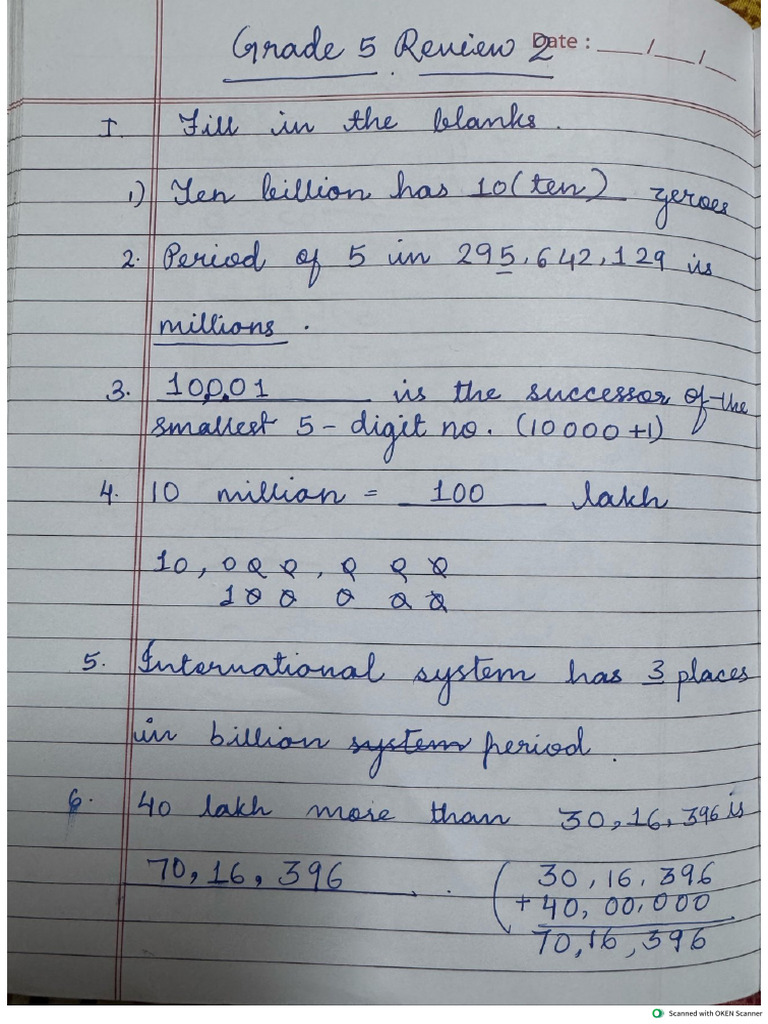 Grade 5 Review 2
Date : __/__/__
I. Fill in the blanks.
1) Ten billion has 10(ten) zeroes
2. Period of 5 in 295,642,129 is
millions.
3. 10,001 is the successor of the
smallest 5-digit no. (10000+1)
4. 10 million = 100 lakh
10,000,000
100 0 0 0 0
5. International system has 3 places
in billion system period.
6. 40 lakh more than 30,16,396 is
70,16,396.
(30,16,396
+40,00,000
70,16,396
Scanned with OKEN Scanner